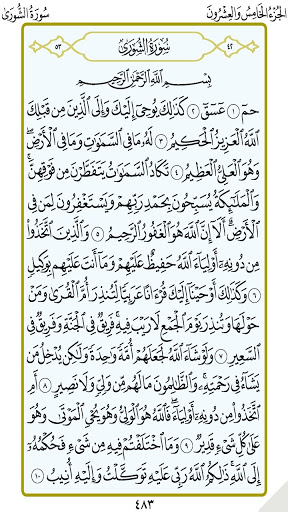 الجُزْءُ الخَامِسُ وَالعِشْرُونَ سُورَةُ الشُّورَىٰ
٤٢ سُورَةُ الشُّورَىٰ ٥٣
بِسْمِ اللَّهِ الرَّحْمَٰنِ الرَّحِيمِ
حمٓ ١ عٓسٓقٓ ٢ كَذَٰلِكَ يُوحِىٓ إِلَيْكَ وَإِلَى ٱلَّذِينَ مِن قَبْلِكَ
ٱللَّهُ ٱلْعَزِيزُ ٱلْحَكِيمُ ٣ لَهُۥ مَا فِى ٱلسَّمَٰوَٰتِ وَمَا فِى ٱلْأَرْضِۖ
وَهُوَ ٱلْعَلِىُّ ٱلْعَظِيمُ ٤ تَكَادُ ٱلسَّمَٰوَٰتُ يَتَفَطَّرْنَ مِن فَوْقِهِنَّۚ
وَٱلْمَلَٰٓئِكَةُ يُسَبِّحُونَ بِحَمْدِ رَبِّهِمْ وَيَسْتَغْفِرُونَ لِمَن فِى
ٱلْأَرْضِۗ أَلَآ إِنَّ ٱللَّهَ هُوَ ٱلْغَفُورُ ٱلرَّحِيمُ ٥ وَٱلَّذِينَ ٱتَّخَذُوا۟
مِن دُونِهِۦٓ أَوْلِيَآءَ ٱللَّهُ حَفِيظٌ عَلَيْهِمْ وَمَآ أَنتَ عَلَيْهِم بِوَكِيلٍ
٦ وَكَذَٰلِكَ أَوْحَيْنَآ إِلَيْكَ قُرْءَانًا عَرَبِيًّا لِّتُنذِرَ أُمَّ ٱلْقُرَىٰ وَمَنْ
حَوْلَهَا وَتُنذِرَ يَوْمَ ٱلْجَمْعِ لَا رَيْبَ فِيهِۚ فَرِيقٌ فِى ٱلْجَنَّةِ وَفَرِيقٌ فِى
ٱلسَّعِيرِ ٧ وَلَوْ شَآءَ ٱللَّهُ لَجَعَلَهُمْ أُمَّةً وَٰحِدَةً وَلَٰكِن يُدْخِلُ مَن
يَشَآءُ فِى رَحْمَتِهِۦۚ وَٱلظَّٰلِمُونَ مَا لَهُم مِّن وَلِىٍّ وَلَا نَصِيرٍ ٨ أَمِ
ٱتَّخَذُوا۟ مِن دُونِهِۦٓ أَوْلِيَآءَۖ فَٱللَّهُ هُوَ ٱلْوَلِىُّ وَهُوَ يُحْىِ ٱلْمَوْتَىٰ وَهُوَ
عَلَىٰ كُلِّ شَىْءٍ قَدِيرٌ ٩ وَمَا ٱخْتَلَفْتُمْ فِيهِ مِن شَىْءٍ فَحُكْمُهُۥٓ
إِلَى ٱللَّهِۚ ذَٰلِكُمُ ٱللَّهُ رَبِّى عَلَيْهِ تَوَكَّلْتُ وَإِلَيْهِ أُنِيبُ ١٠
٤٨٣